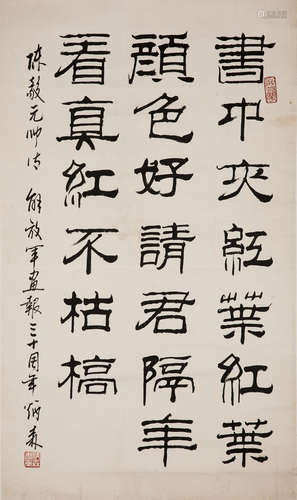 書中夾紅葉紅葉
顏色好請君隔年
看真紅不枯槁
陳毅元帥詩 解放軍畫報三十周年 炳森